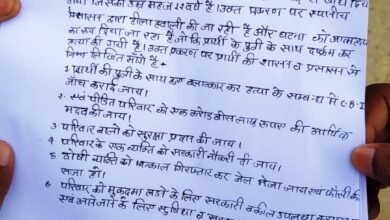 गया जिसकी उम्र महज 12 वर्ष है। उक्त प्रकरण पर स्थानीय
प्रशासन द्वारा हीला हवाली की जा रही है और घटना को आत्महत्या
का रूप दिया जा रहा है जो कि प्रार्थी के पुत्री के साथ दुष्कर्म कर
हत्या की गयी है। उक्त प्रकरण पर प्रार्थी की शासन व प्रशासन से
निम्न लिखित मांगे है -
1 प्रार्थी की पुत्री के साथ हुए बलात्कार कर हत्या के सम्बन्ध मे C.B.I
जाँच कराई जाय।
2. एवं पीड़ित परिवार को एक करोड़ बीस लाख रूपए की आर्थिक
मदद की जाय।
3 परिवार वालो को सुरक्षा प्रदान की जाय।
4 परिवार के एक व्यक्ति को सरकारी नौकरी दी जाय।
5 दोषी व्यक्ति को तत्काल गिरफ्तार कर जेल भेजा जाय एवं फाँसी की
सजा हो।
6 परिवार को मुकदमा लड़ने के लिए सरकारी वकील उपलब्ध
एवं आने जाने के लिए सुविधा व